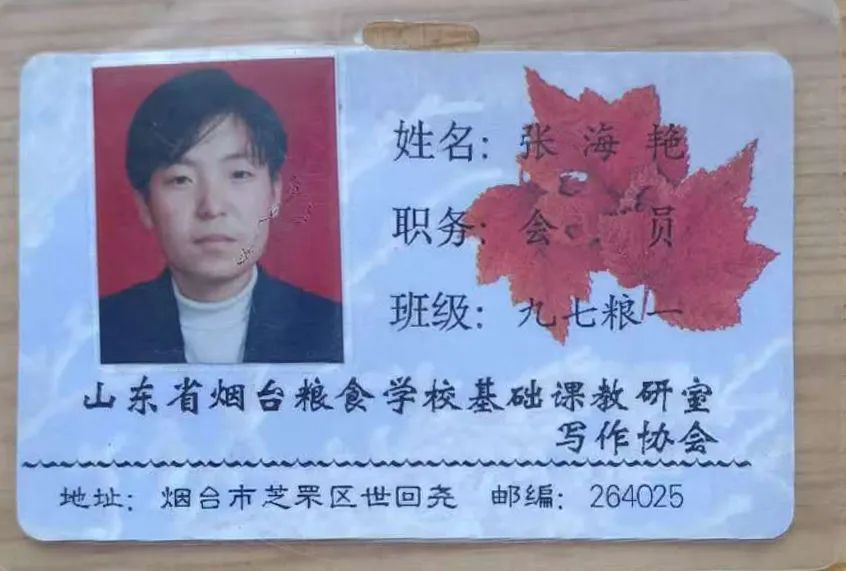 姓名：张海艳
职务：会员
班级：九七粮一
山东省烟台粮食学校基础课教研室
写作协会
地址：烟台市芝罘区世回尧 邮编：264025